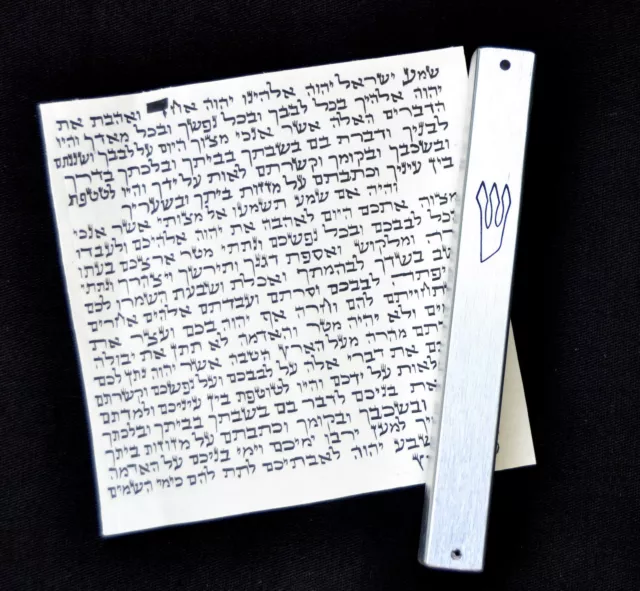 שמע ישראל יהוה אלהינו יהוה אחד ואהבת את
יהוה אלהיך בכל לבבך ובכל נפשך ובכל מאדך והיו
הדברים האלה אשר אנכי מצוך היום על לבבך ושננתם
לבניך ודברת בם בשבתך בביתך ובלכתך בדרך
ובשכבך ובקומך וקשרתם לאות על ידך והיו לטטפת
בין עיניך וכתבתם על מזזות ביתך ובשעריך
והיה אם שמע תשמעו אל מצותי אשר אנכי
מצוה אתכם היום לאהבה את יהוה אלהיכם ולעבדו
בכל לבבכם ובכל נפשכם ונתתי מטר ארצכם בעתו
רה ומלקוש ואספת דגנך ותירשך ויצהרך ונתתי
שב בשדך לבהמתך ואכלת ושבעת השמרו לכם
יפתה לבבכם וסרתם ועבדתם אלהים אחרים
תחויתם להם וחרה אף יהוה בכם ועצר את
ים ולא יהיה מטר והאדמה לא תתן את יבולה
תם מהרה מעל הארץ הטבה אשר יהוה נתן לכם
ם את דברי אלה על לבבכם ועל נפשכם וקשרתם
לאות על ידכם והיו לטוטפת בין עיניכם ולמדתם
את בניכם לדבר בם בשבתך בביתך ובלכתך
ובשכבך ובקומך וכתבתם על מזוזות ביתך
יך למען ירבו ימיכם וימי בניכם על האדמה
שבע יהוה לאבתיכם לתת להם כימי השמים
ש